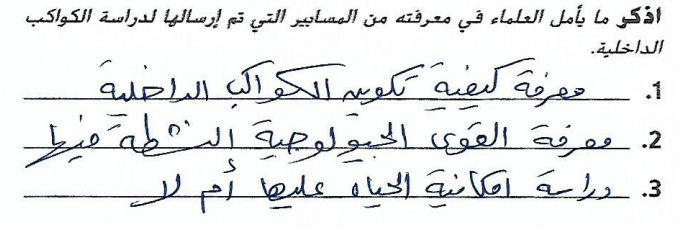 اذكر ما يأمل العلماء في معرفته من المسابير التي تم إرسالها لدراسة الكواكب
الداخلية.
1. معرفة كيفية تكوين الكواكب الداخلية
2. معرفة القوى الجيولوجية النشطة فيها
3. دراسة امكانية الحياه عليها أم لا